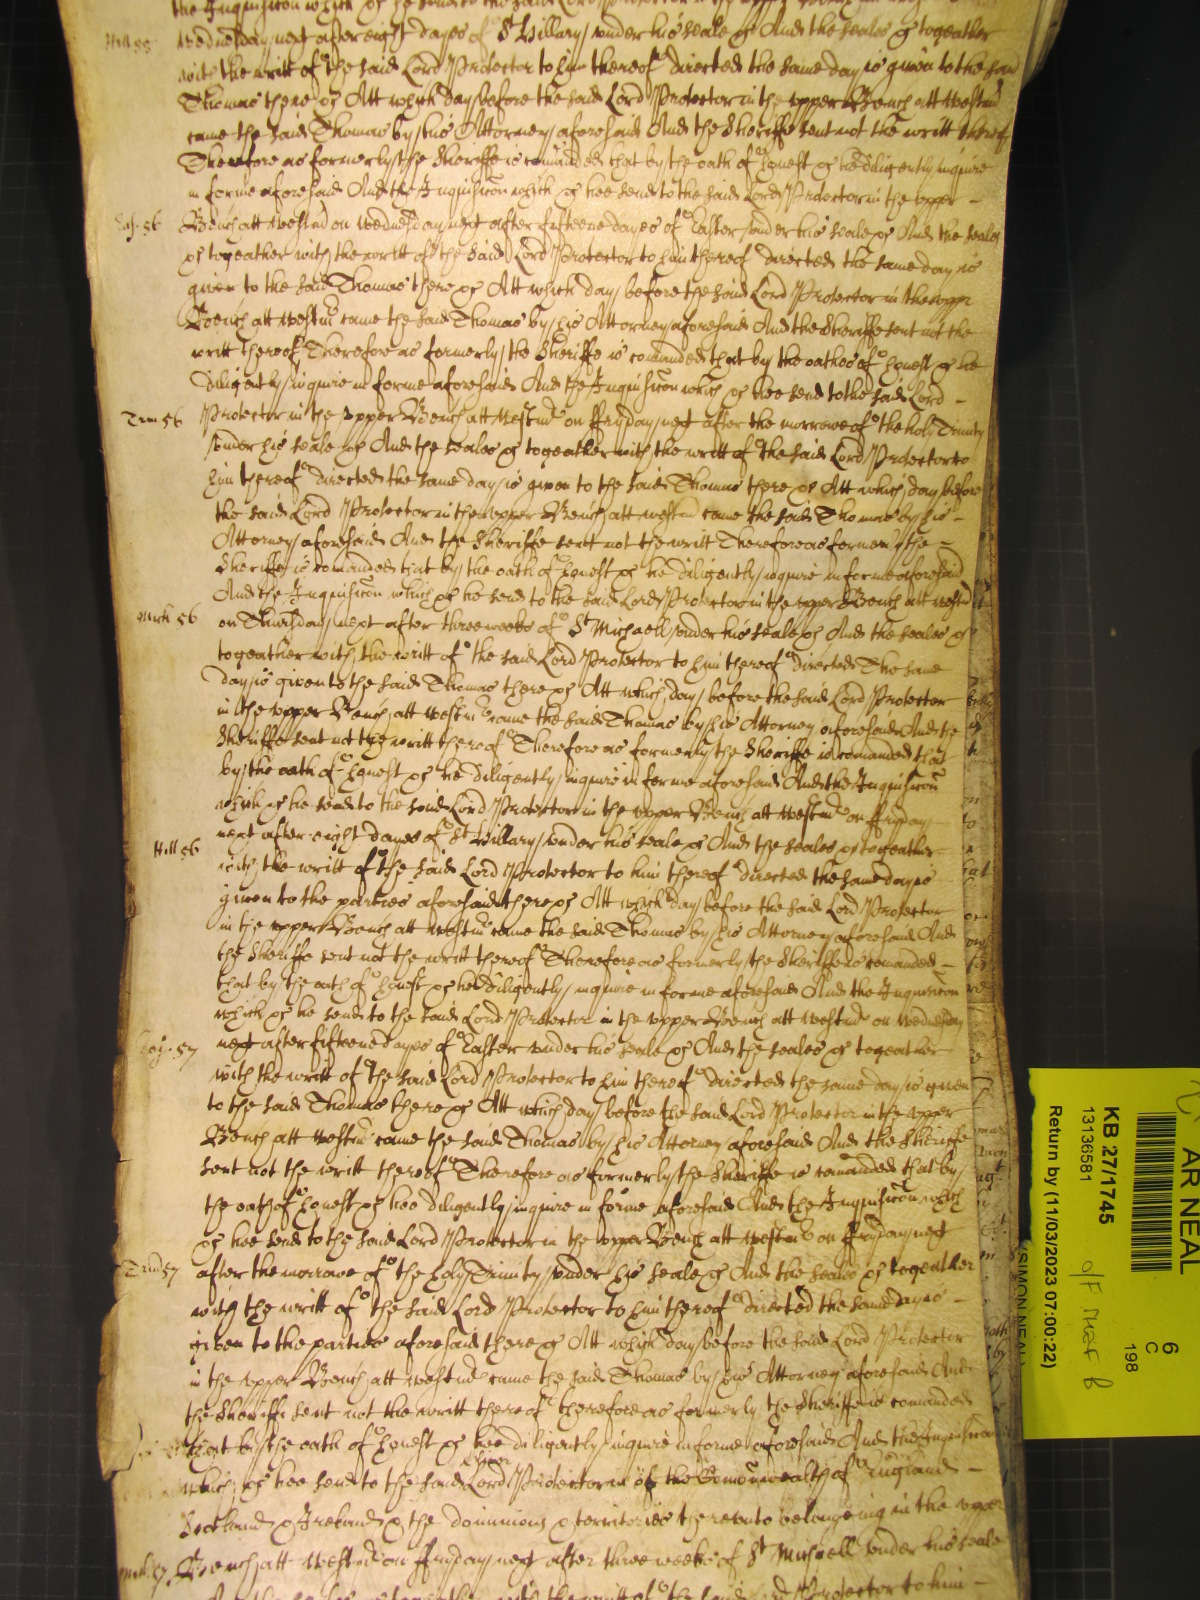 the Inquisicon which &c he send to the said Lord Protector in the upper
Hill 55 Wednesday next after eight dayes of St Hillary under his seale &c And the seales &c togeather
with the writt of the said Lord Protector to him thereof directed the same day is given to the said
Thomas there &c Att which day before the said Lord Protector in the upper Bench att Westmr
came the said Thomas by his Attorney aforesaid And the Sheriffe sent not the writt thereof
Therefore as formerly the Sheriffe is comanded that by the oath of honest &c he diligently inquire
in forme aforesaid And the Inquisicon which &c hee send to the said Lord Protector in the upper
Eas. 56 Bench att Westmr on Wednesday next after fifteene dayes of Easter under his seale &c And the seales
&c togeather with the writt of the said Lord Protector to him thereof directed the same day is
given to the said Thomas there &c Att which day before the said Lord Protector in the upper
Bench att Westmr came the said Thomas by his Attorney aforesaid And the Sheriffe sent not the
writt thereof Therefore as formerly the Sheriffe is comanded that by the oathes of honest &c he
diligently inquire in forme aforesaid And the Inquisicon which &c hee send to the said Lord
Trin 56 Protector in the upper Bench att Westmr on ffryday next after the morrowe of the holy Trinity
under his seale &c And the seales &c togeather with the writt of the said Lord Protector to
him thereof directed the same day is given to the said Thomas there &c Att which day before
the said Lord Protector in the upper Bench att Westmr came the said Thomas by his
Attorney aforesaid And the Sheriffe sent not the writt Therefore as formerly the
Sheriffe is comanded that by the oath of honest &c he diligently inquire in forme aforesaid
And the Inquisicon which &c he send to the said Lord Protector in the upper Bench att Westmr
Mich 56 on Thursday next after three weeks of St Michaell under his seale &c And the seales &c
togeather with the writt of the said Lord Protector to him thereof directed The same
day is given to the said Thomas there &c Att which day before the said Lord Protector
in the upper Bench att Westmr came the said Thomas by his Attorney aforesaid And the
Sheriffe sent not the writt thereof Therefore as formerly the Sheriffe is comanded that
by the oath of honest &c he diligently inquire in forme aforesaid And the Inquisicon
which &c he send to the said Lord Protector in the upper Bench att Westmr on ffryday
Hill 56 next after eight dayes of St Hillary under his seale &c And the seales &c togeather
with the writt of the said Lord Protector to him thereof directed the same day is
given to the parties aforesaid there &c Att which day before the said Lord Protector
in the upper Bench att Westmr came the said Thomas by his Attorney aforesaid And
the Sheriffe sent not the writt thereof Therefore as formerly the Sheriffe is comanded
that by the oath of honest &c he diligently inquire in forme aforesaid And the Inquisicon
which &c he send to the said Lord Protector in the upper Bench att Westmr on Wednesday
Eas. 57 next after fifteene dayes of Easter under his seale &c And the seales &c togeather
with the writt of the said Lord Protector to him thereof directed the same day is given
to the said Thomas there &c Att which day before the said Lord Protector in the upper
Bench att Westmr came the said Thomas by his Attorney aforesaid And the Sheriffe
sent not the writt thereof Therefore as formerly the Sheriffe is comanded that by
the oath of honest &c hee diligently inquire in forme aforesaid And the Inquisicon which
&c hee send to the said Lord Protector in the upper Bench att Westmr on ffryday next
Trin 57 after the morrowe of the holy Trinity under his seale &c And the seales &c togeather
with the writt of the said Lord Protector to him thereof directed the same day is
given to the parties aforesaid there &c Att which day before the said Lord Protector
in the upper Bench att Westmr came the said Thomas by his Attorney aforesaid And
the Sheriffe sent not the writt thereof therefore as formerly the Sheriffe is comanded
that by the oath of honest &c hee diligently inquire in forme aforesaid And the Inquisicon
which &c hee send to the said Lord Protector of the Comonwealth of England
Scotland & Ireland & the dominions & territories thereunto belongeing in the upper
Mich 57 Bench att Westmr on ffryday next after three weeks of St Michaell under his seale
Protector to him
AR NEAL
6
C
198
KB 27/1745
13136581
Return by (11/03/2023 07:00:22)
(SIMON NEAL)